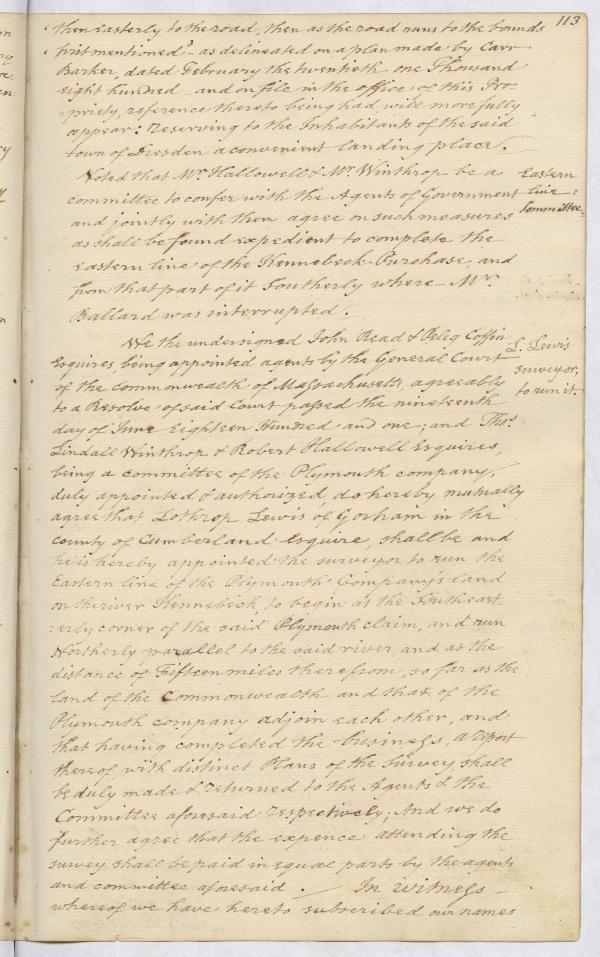 113
"then Easterly to the road, then as the road runs to the bounds
"first mentioned" - as delineated on a plan made by Carr
Barker, dated February the twentieth one Thousand
eight hundred - and on file in the office of this Pro-
-priety, reference thereto being had will more fully
appear: reserving to the Inhabitants of the said
town of Dresden a convenient landing place.
Voted that Mr. Hallowell & Mr. Winthrop be a
committee to confer with the Agents of Government
and jointly with them agree on such measures
as shall be found expedient to complete the
eastern line of the Kennebeck Purchase, and
from that part of it Southerly where Mr.
Ballard was interrupted.
Eastern
line:
Committee.
We the undersigned John Read & Peleg Coffin
Esquires, being appointed agents by the General Court
of the Commonwealth of Massachusetts, agreeably
to a Resolve of said Court passed the nineteenth
day of June Eighteen Hundred and one; and Thos.
Lindall Winthrop & Robert Hallowell Esquires,
being a committee of the Plymouth company,
duly appointed & authorized, do hereby mutually
agree that Lothrop Lewis of Gorham in the
county of Cumberland Esquire, shall be and
he is hereby appointed the surveyor to run the
Eastern line of the Plymouth Company's land
on the river Kennebeck, to begin at the South east
-erly corner of the said Plymouth claim, and run
Northerly parallel to the said river, and at the
distance of Fifteen miles therefrom, so far as the
land of the Commonwealth and that of the
Plymouth company adjoin each other, and
that having completed the business, a report
thereof, with distinct Plans of the survey shall
be duly made & returned to the Agents & the
Committee aforesaid respectively; And we do
further agree that the expence attending the
survey shall be paid in equal parts by the agents
and committee aforesaid. In witness
whereof we have hereto subscribed our names
L. Lewis
surveyor,
to run it.